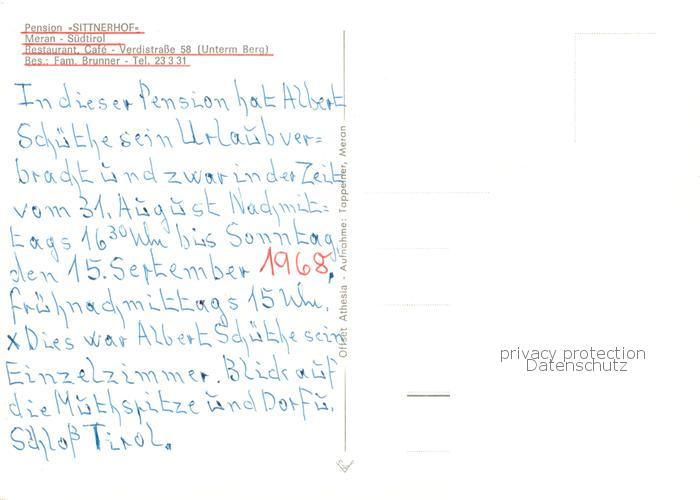 Pension »SITTNERHOF«
Meran - Südtirol
Restaurant, Café - Verdistraße 58 (Unterm Berg)
Bes.: Fam. Brunner - Tel. 23 3 31
In dieser Pension hat Albert
Schüthe sein Urlaub ver=
bracht und zwar in der Zeit
vom 31. August Nachmit=
tags 16³⁰ Uhr bis Sonntag,
den 15. September 1968,
frühnachmittags 15 Uhr.
x Dies war Albert Schüthe sein
Einzelzimmer. Blick auf
die Muthspitze und Dorf u.
Schloß Tirol.
Offset Athesia - Aufnahme: Tappeiner, Meran
privacy protection
Datenschutz